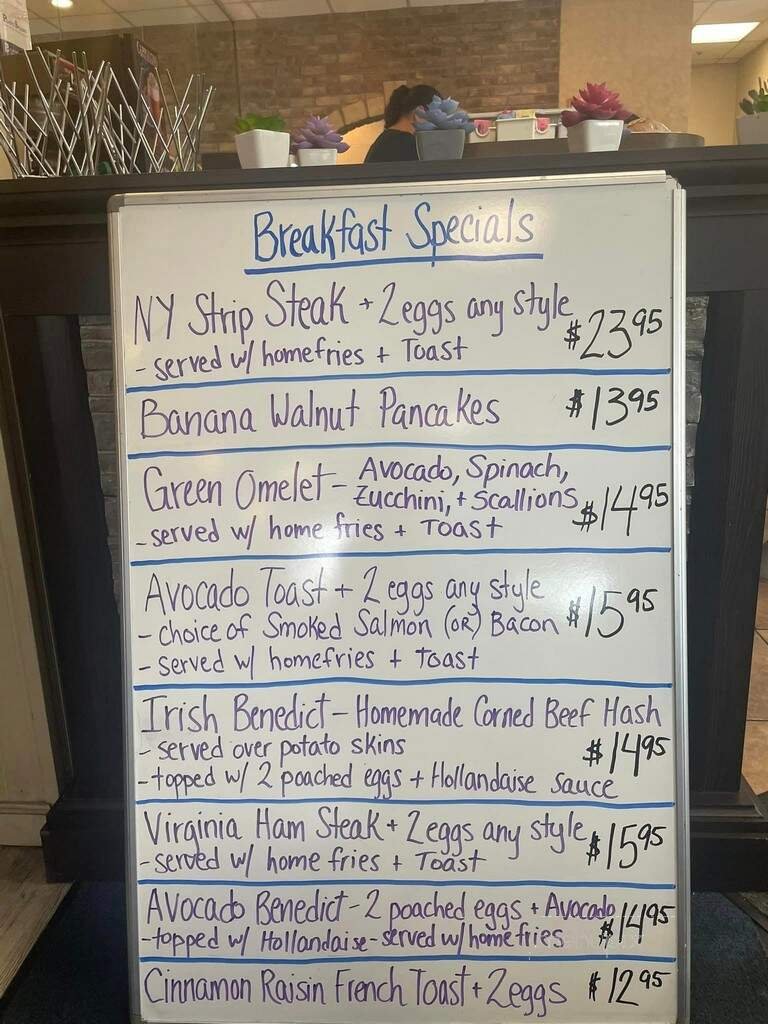 Breakfast Specials
NY Strip Steak + 2eggs any style
- served w/ homefries + Toast $23.95
Banana Walnut Pancakes $13.95
Green Omelet - Avocado, Spinach,
Zucchini, + Scallions $14.95
- served w/ home fries + Toast
Avocado Toast + 2 eggs any style
- choice of Smoked Salmon (OR) Bacon $15.95
- served w/ homefries + Toast
Irish Benedict - Homemade Corned Beef Hash
- served over potato skins $14.95
- topped w/ 2 poached eggs + Hollandaise sauce
Virginia Ham Steak + 2eggs any style $15.95
- served w/ home fries + Toast
Avocado Benedict - 2 poached eggs + Avocado $14.95
- topped w/ Hollandaise - served w/ homefries
Cinnamon Raisin French Toast + 2eggs $12.95